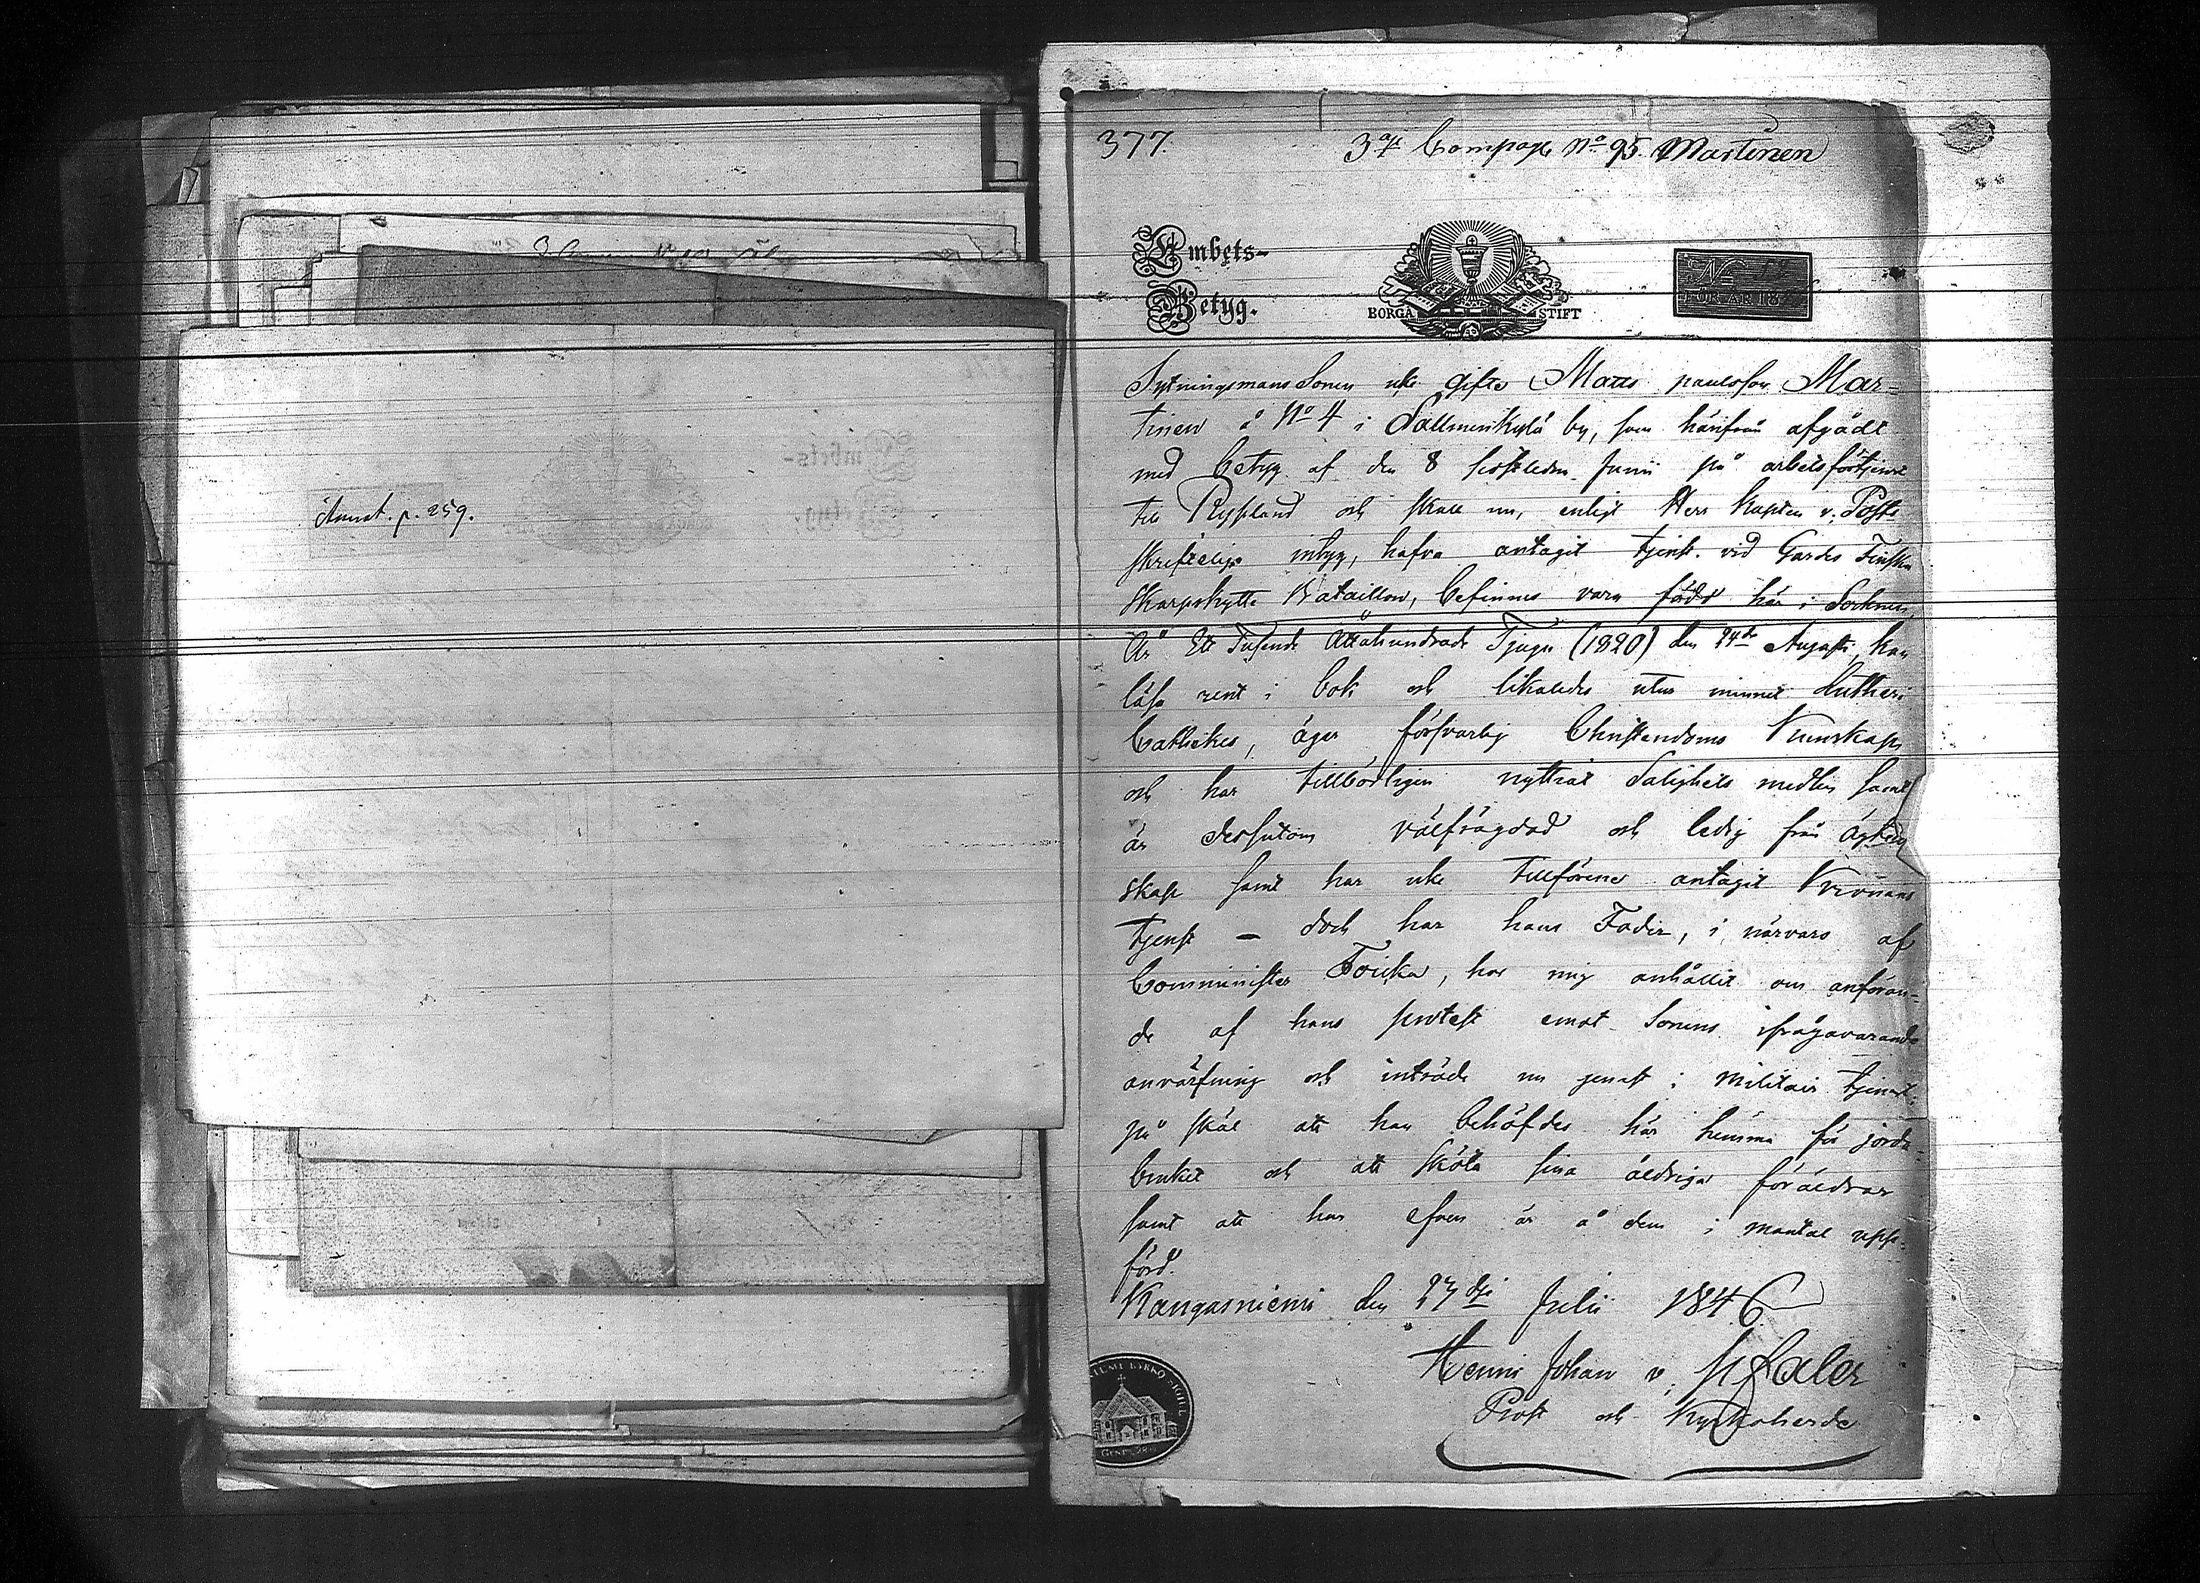 Anmt. p. 259.
377. 3dje Compagn No 95. Martinen
Embets-
Betyg.
BORGÅ STIFT
No
FÖR ÅR 18
Sytningsmans Sonen icke gifte Matts paulsson Mar-
tinen å No 4 i Salmenkylä by, som härifrån afgådt
med betyg af den 8 sistleden Junii på arbetsförtjenst
till Ryssland och skall nu, enligt Herr Kapten v.
skrifteliga intyg, hafva antagit tjenst vid Gardes Finska
Skarpskytte Bataillon, befinnes vara född här i Socknen
År Ett Tusende Åttahundrade Tjugu (1820) den 24de Augusti, kan
läsa rent i bok och likaledes utur minnet Lutheri
Cathekes, äger försvarlig Christendoms Kunskap
och har tillbörligen nyttjat Salighets medlen samt
är dessutom välfrägdad och ledig från ägten-
skap samt har icke tillförene antagit Krono
tjenst — doch har hans Fader, i närvaro af
Comminister Toicka, hos mig anhållit om anföran-
de af hans protest emot Sonens ifrågavarande
anvärfning och inträde nu genast i militair tjenst,
på skäl att han behöfdes här hemma för jord-
bruket och att sköta sina åldriga föräldrar
samt att han äfven är å dem i mantal upp-
förd.
Kangasniemi den 27de Julii 1846
Henric Johan v.
Prost och Kyrkoherde
KYRKO SIGILL